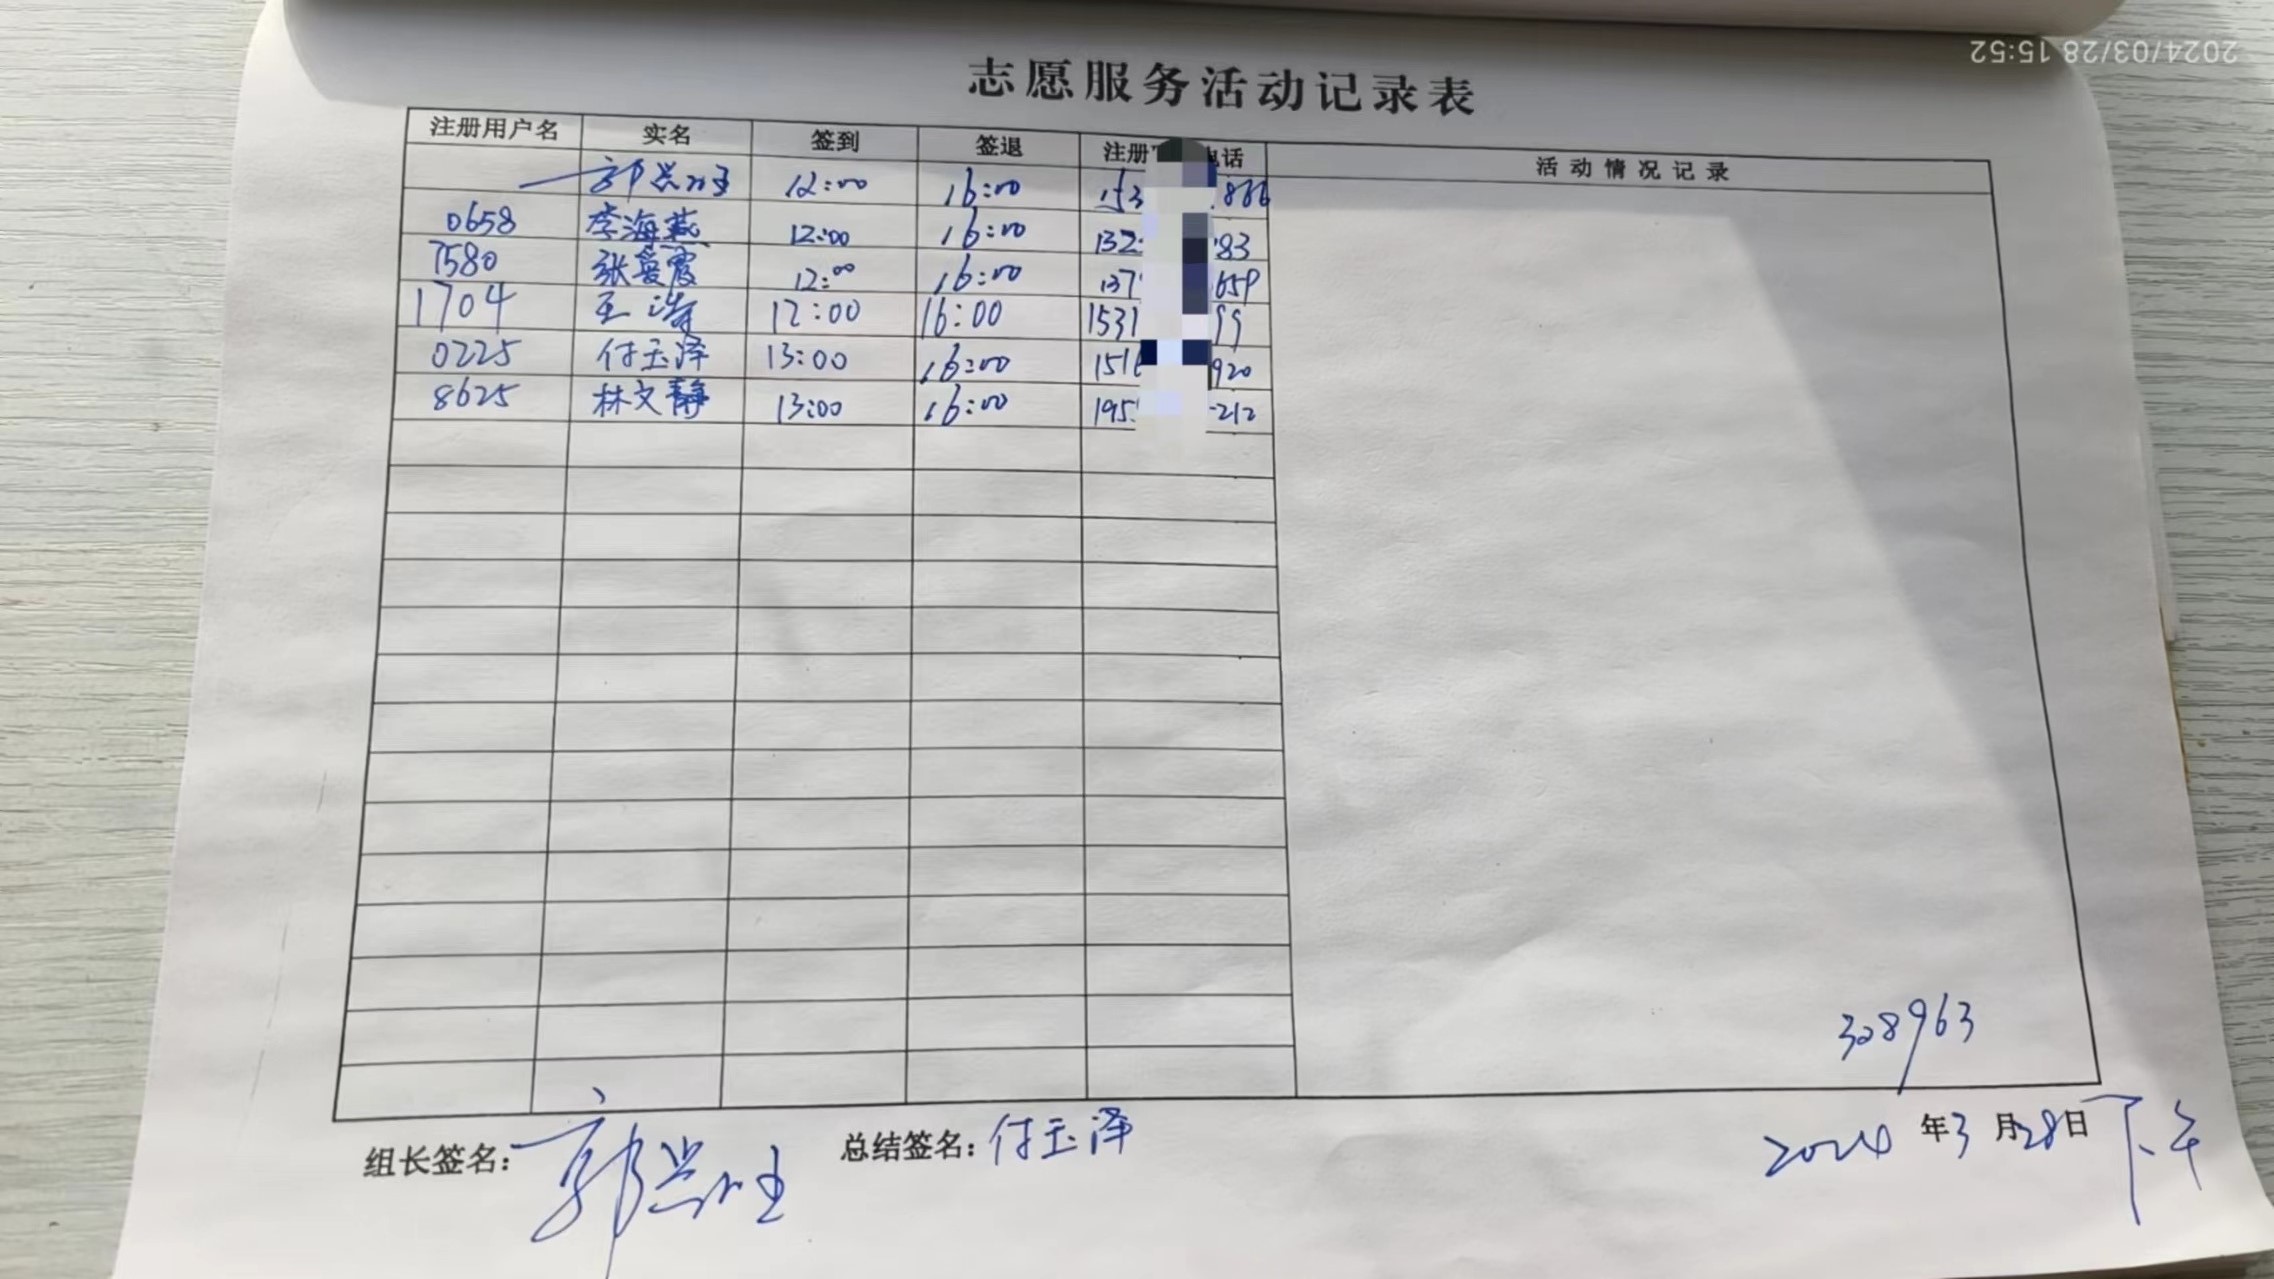 2024/03/28 15:52
志愿服务活动记录表
注册用户名 实名 签到 签退 注册 电话 活动情况记录
郭兴旺 12:00 16:00 153 866
0658 李海燕 12:00 16:00 132 83
7580 张爱霞 12:00 16:00 137 659
1704 王涛 12:00 16:00 1531 99
0225 付玉泽 13:00 16:00 1516 920
8625 林文静 13:00 16:00 195 212
308963
组长签名：郭兴旺 总结签名：付玉泽 2024年3月28日下午